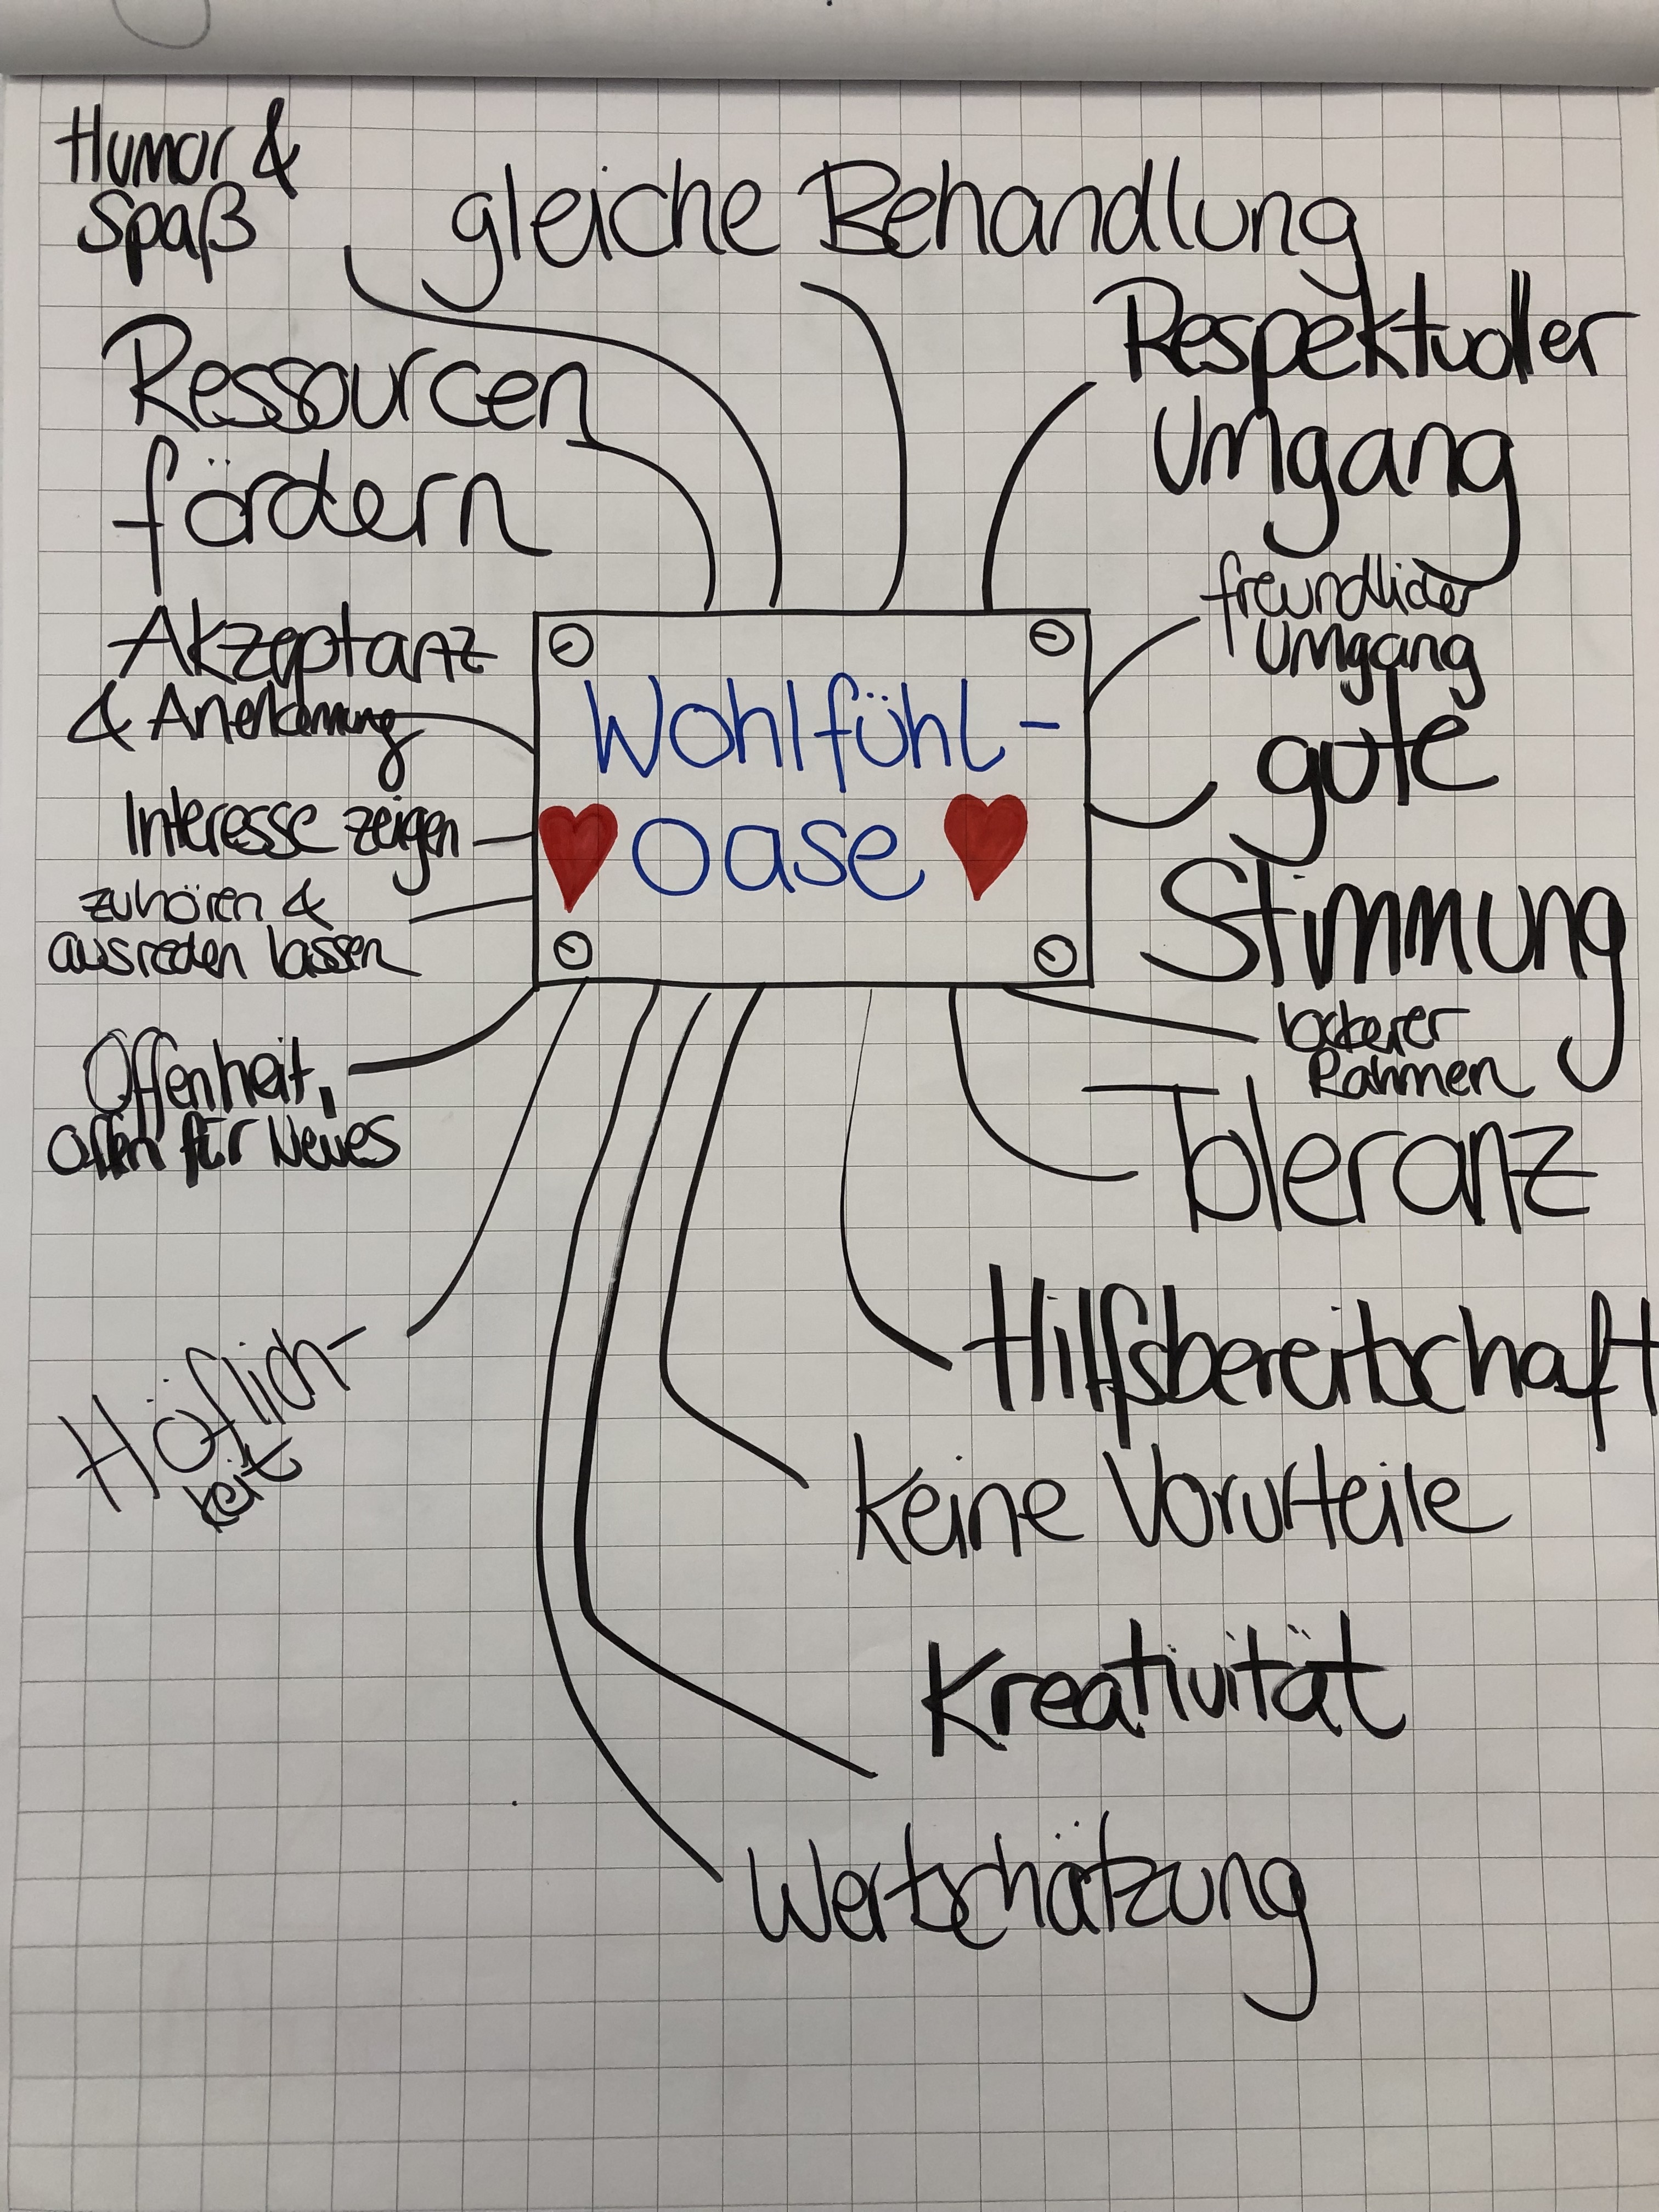 Humor &
Spaß
gleiche Behandlung
Respektvoller
Umgang
Ressourcen
fördern
freundlicher
Umgang
Akzeptanz
& Anerkennung
Wohlfühl-
oase
gute
Stimmung
Interesse zeigen
zuhören &
ausreden lassen
lockerer
Rahmen
Offenheit,
offen für Neues
Toleranz
Höflich-
keit
Hilfsbereitschaft
keine Vorurteile
Kreativität
Wertschätzung